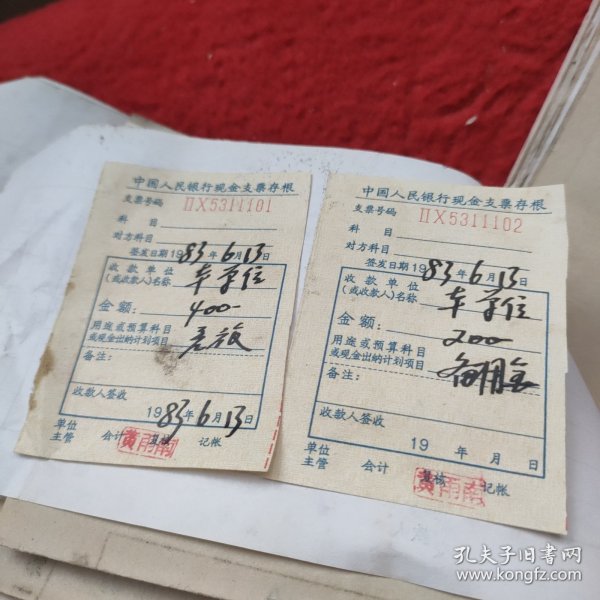 中国人民银行现金支票存根
支票号码 IIX5311101
科 目
对方科目
签发日期 1983年6月13日
收款单位
(或收款人)名称 本单位
金额: 400-
用途或预算科目
或现金出纳计划项目 差旅
备注:
收款人签收
1983年6月13日
单位
主管 会计 复核 记帐
黄雨南
中国人民银行现金支票存根
支票号码 IIX5311102
科 目
对方科目
签发日期 1983年6月13日
收款单位
(或收款人)名称 本单位
金额: 200-
用途或预算科目
或现金出纳计划项目 备用金
备注:
收款人签收
19 年 月 日
单位
主管 会计 复核 记帐
黄雨南
孔夫子旧书网
www.kongfz.com